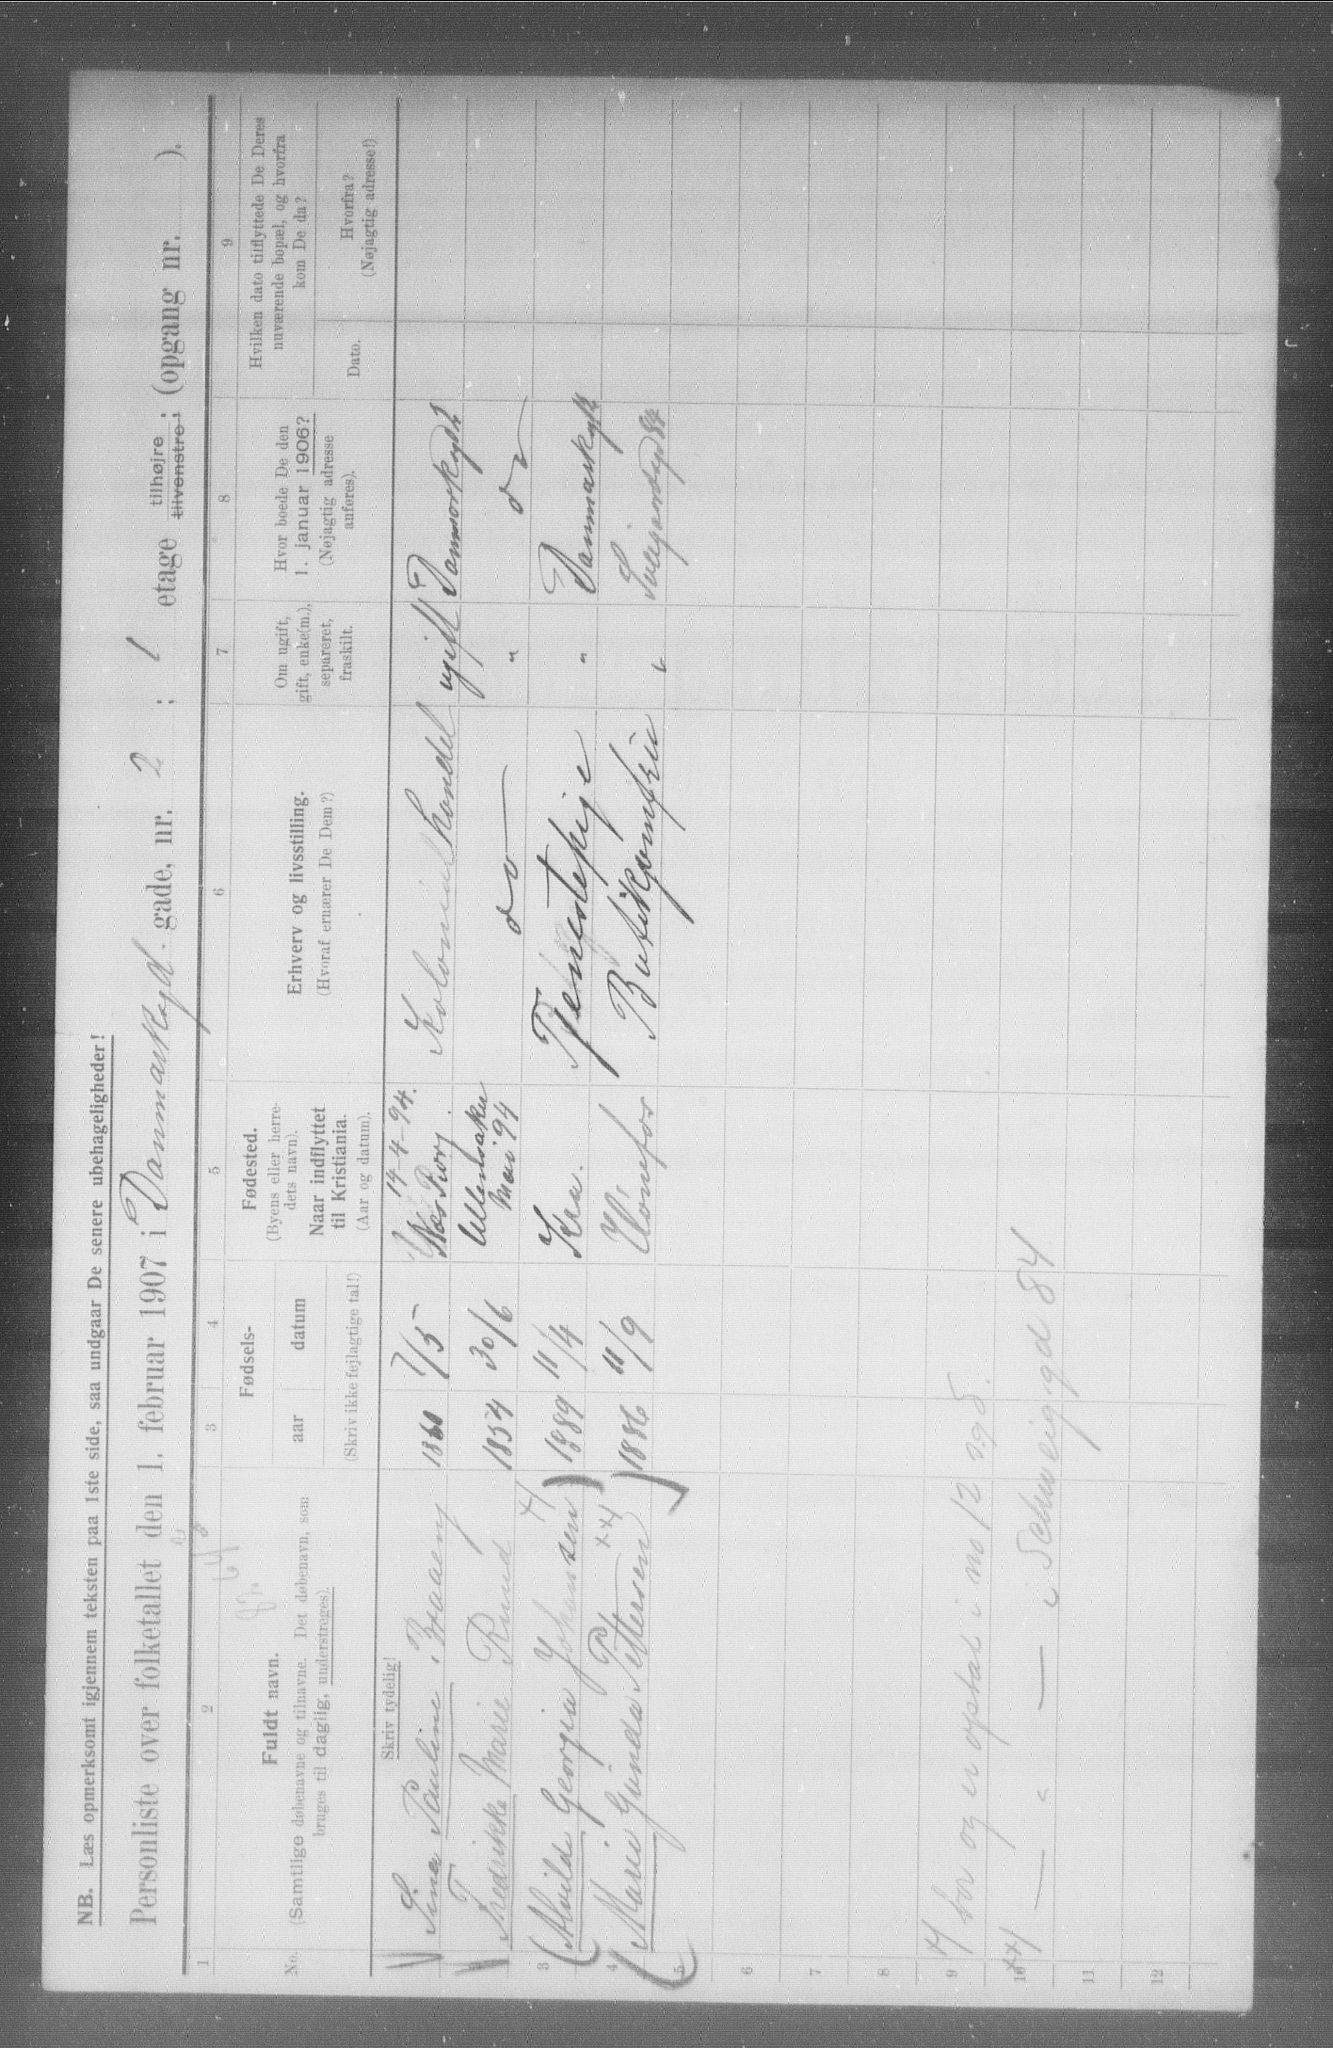 NB. Læs opmerksomt igjennem teksten paa 1ste side, saa undgaar De senere ubehageligheder!
Personliste over folketallet den 1. februar 1907 i Danmarksgd. gade, nr. 2 ; 1 etage tilhøjre ; (opgang nr. ).
tilvenstre
1 2 3 4 5 6 7 8 9
No.
Fuldt navn.
(Samtlige døbenavne og tilnavne. Det døbenavn, som
bruges til daglig, understreges).
Fødsels-
aar datum
(Skriv ikke fejlagtige tal!)
Fødested.
(Byens eller herre-
dets navn).
Naar indflyttet
til Kristiania.
(Aar og datum).
Erhverv og livsstilling.
(Hvoraf ernærer De Dem?)
Om ugift,
gift, enke(m.),
separeret,
fraskilt.
Hvor boede De den
1. januar 1906?
(Nøjagtig adresse
anføres).
Hvilken dato tilflyttede De Deres
nuværende bopæl, og hvorfra
kom De da?
Dato.
Hvorfra?
(Nøjagtig adresse!)
Skriv tydelig!
Pauline Braaeng 1860 7/5 14-4-94. Kolonialhandel ugift Danmarksgd 2
2 Fredrikke Marie Ruud 1854 30/6 Ullensaker Mai 94 do " do
3 Alvilde Georgia Johansen x) 1889 11/4 Kra. Tjenestepige " Danmarksgd 2
4 Marie Gunda Pettersen xx) 1886 11/9 Hønefos Butikjomfru "
5
6
7
8
9 x) bor og er optat i no 12 s.g.
10 xx) — " — i Schweigsgd 84
11
12